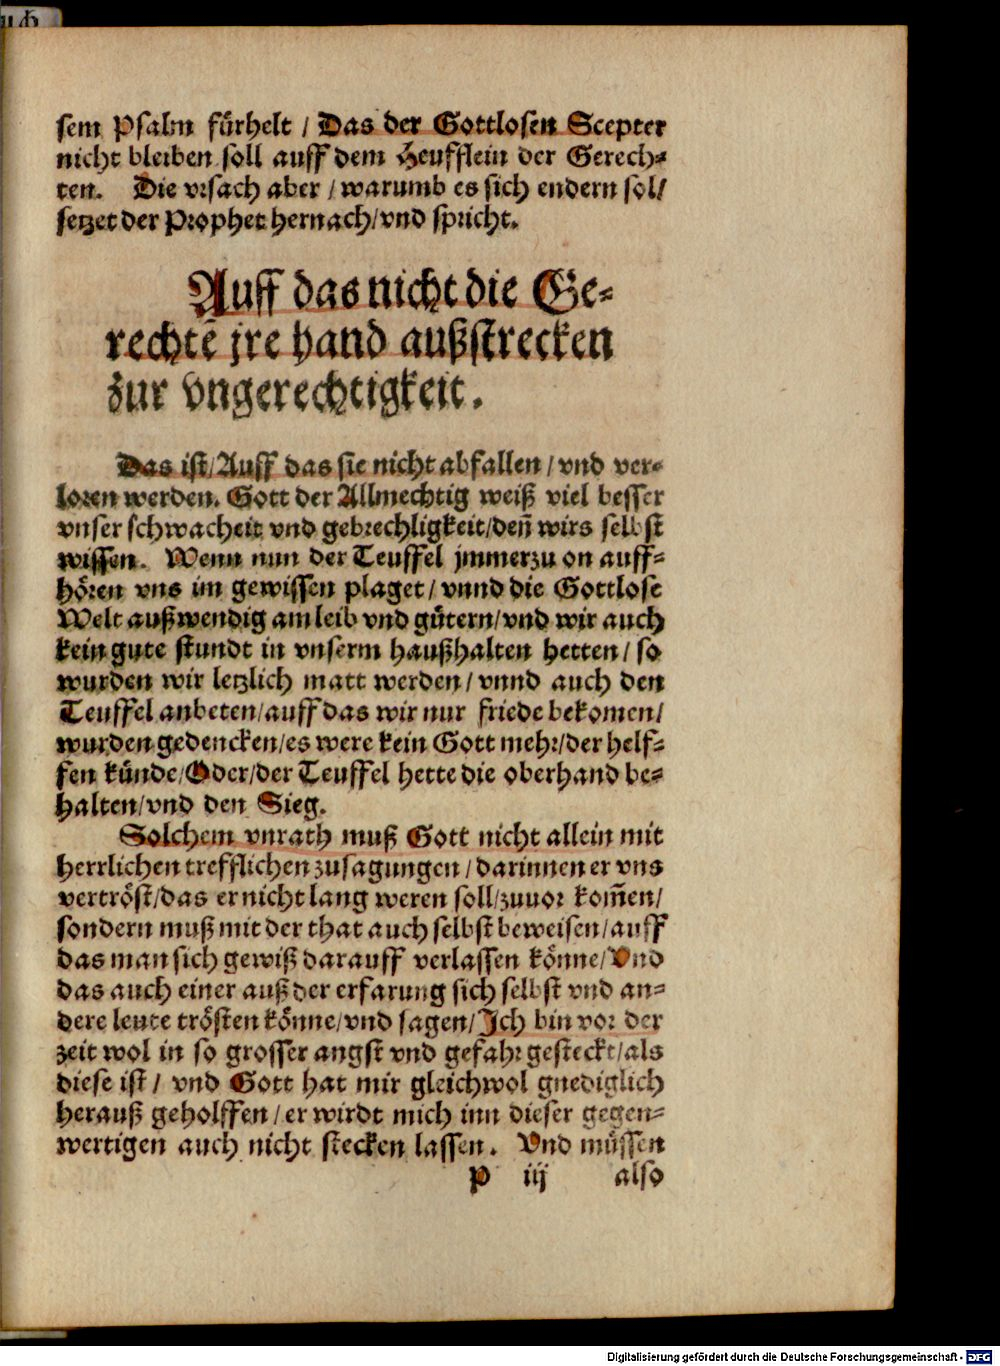 sem Psalm fürhelt / Das der Gottlosen Scepter
nicht bleiben soll auff dem Heufflein der Gerech-
ten. Die vrsach aber / warumb es sich endern sol/
setzet der Prophet hernach/vnd spricht.
Auff das nicht die Ge-
rechtē jre hand außstrecken
zur vngerechtigkeit.
Das ist/Auff das sie nicht abfallen / vnd ver-
loren werden. Gott der Allmechtig weiß viel besser
vnser schwacheit vnd gebrechligkeit/deñ wirs selbst
wissen. Wenn nun der Teuffel jmmerzu on auff-
hören vns im gewissen plaget / vnnd die Gottlose
Welt außwendig am leib vnd gütern/vnd wir auch
kein gute stundt in vnserm haußhalten hetten / so
wurden wir letzlich matt werden / vnnd auch den
Teuffel anbeten/auff das wir nur friede bekomen/
wurden gedencken/es were kein Gott mehr/der helf-
fen künde/Oder/der Teuffel hette die oberhand be-
halten/vnd den Sieg.
Solchem vnrath muß Gott nicht allein mit
herrlichen trefflichen zusagungen / darinnen er vns
vertröst/das er nicht lang weren soll/zuuor kom̃en/
sondern muß mit der that auch selbst beweisen/auff
das man sich gewiß darauff verlassen könne/Vnd
das auch einer auß der erfarung sich selbst vnd an-
dere leute trösten könne/vnd sagen/Ich bin vor der
zeit wol in so grosser angst vnd gefahr gesteckt/als
diese ist / vnd Gott hat mir gleichwol gnediglich
herauß geholffen / er wirdt mich inn dieser gegen-
wertigen auch nicht stecken lassen. Vnd müssen
P iij also
Digitalisierung gefördert durch die Deutsche Forschungsgemeinschaft - DFG